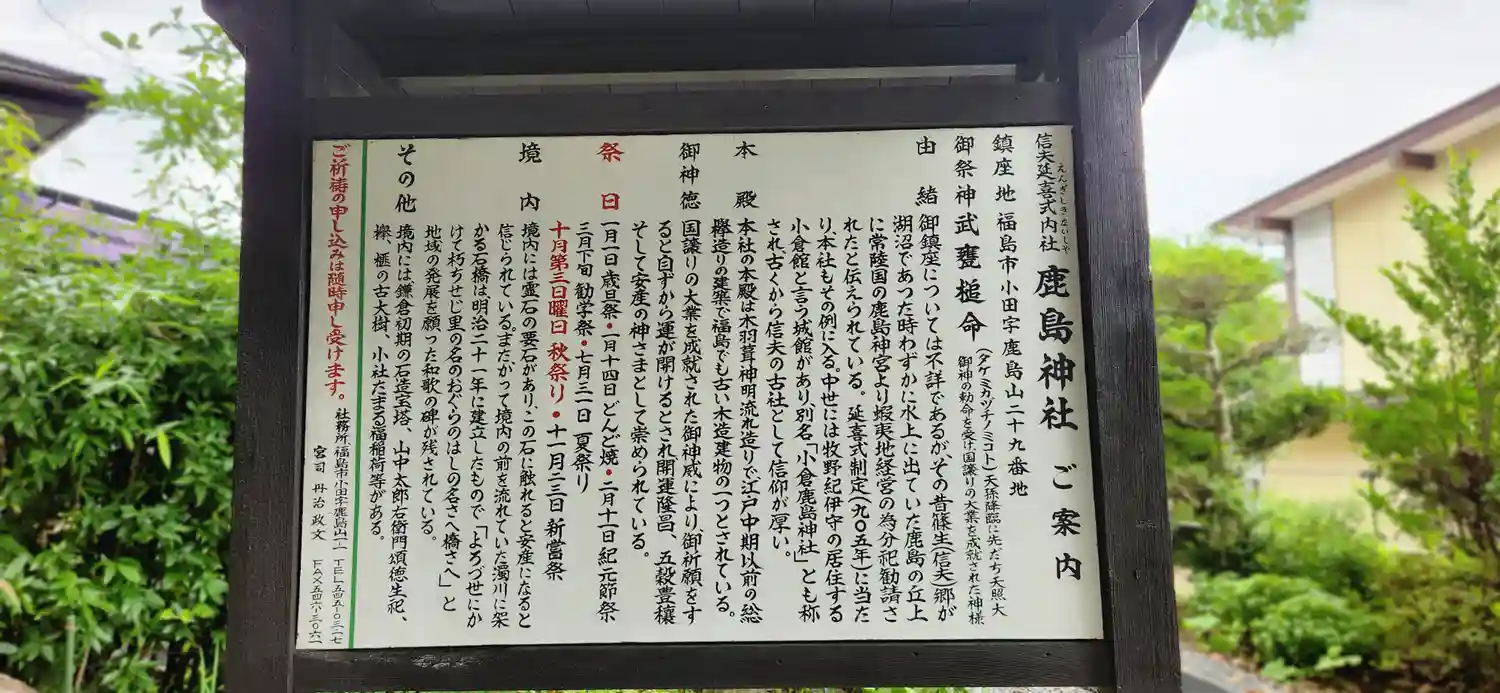 信夫延喜式内社 鹿島神社 ご案内
えんぎしきないしや
鎮座地 福島市小田字鹿島山二十九番地
御祭神 武甕槌命 (タケミカツチノミコト)天孫降臨に先だち天照大
御神の勅命を受け国譲りの大業を成就された神様
由緒 御鎮座については不詳であるが、その昔篠生(信夫)郷が
湖沼であつた時わずかに水上に出ていた鹿島の丘上
に常陸国の鹿島神宮より蝦夷地経営の為分祀勧請さ
れたと伝えられている。延喜式制定(九〇五年)に当た
り、本社もその例に入る。中世には牧野紀伊守の居住する
小倉館と言う城館があり別名「小倉鹿島神社」とも称
され古くから信夫の古社として信仰が厚い。
本殿 本社の本殿は木羽葺神明流れ造りで江戸中期以前の総
欅造りの建築で福島でも古い木造建物の一つとされている。
御神徳 国譲りの大業を成就された御神威により、御祈願をす
ると自ずから運が開けるとされ開運隆昌、五穀豊穣
そして安産の神さまとして崇められている。
祭日 一月一日歳旦祭・一月十四日どんど焼・二月十一日紀元節祭
三月下旬勧学祭・七月三一日夏祭り
十月第三日曜日秋祭り・十一月二三日新嘗祭
境内 境内には霊石の要石があり、この石に触れると安産になると
信じられている。またかつて境内の前を流れていた濁川に架
かる石橋は明治二十一年に建立したもので「よろづ世にか
けて朽ちせじ里の名のおぐらのはしの名さへ橋さへ」と
地域の発展を願った和歌の碑が残されている。
その他 境内には鎌倉初期の石造宝塔、山中太郎右衛門頌徳生祀、
欅、榧の古大樹、小社たまる福稲荷等がある。
ご祈祷の申し込みは随時申し受けます。
社務所 福島市小田字鹿島山一一 TEL五四五-〇三一七
宮司 丹治政文 FAX五四六-三〇六一